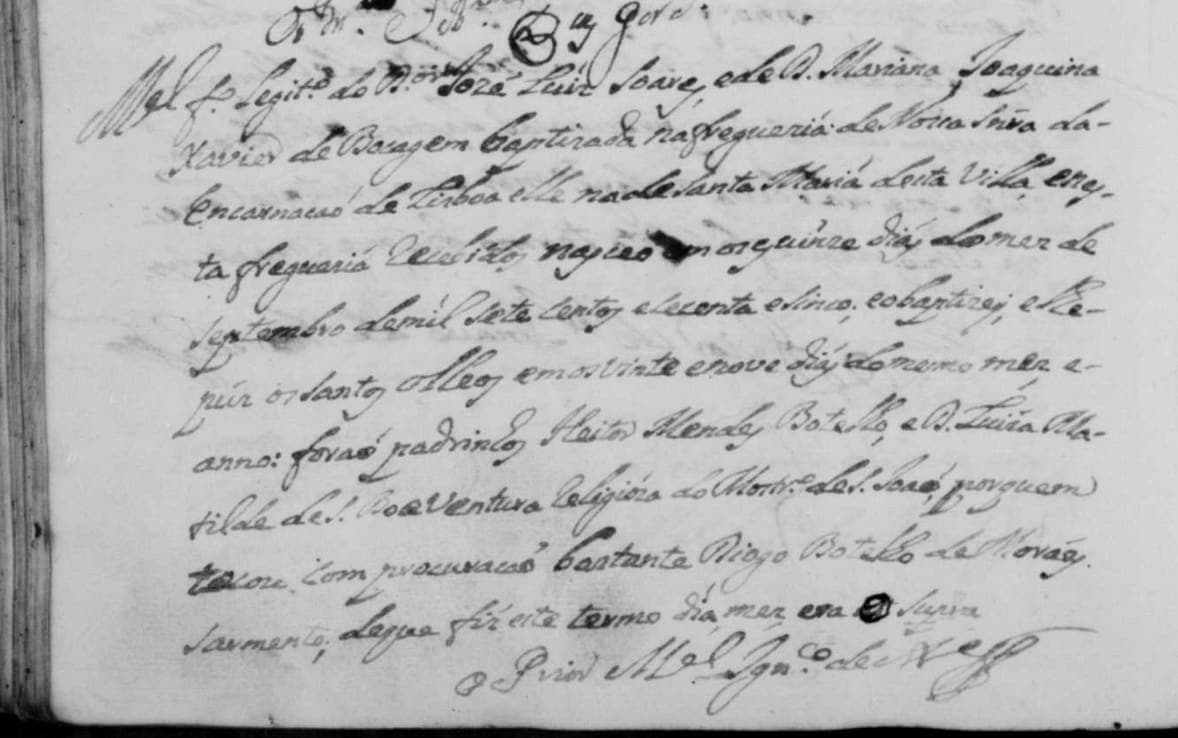 Mel fº Legitº do D.or Jozé Luiz Soares, e de D. Mariana Joaquina
Xavier de Bocagem baptizada na freguezia de Nossa Snra da-
Encarnacaõ de Lisboa elle na de Santa Maria desta Villa, e nes-
ta freguezia Recebidos nasceo em os quinze dias do mez de
Septembro de mil sete centos e secenta e sinco, e o baptizej, e lhe-
puz os santos olleos em os vinte e nove dias do mesmo mez, e-
anno: foraõ padrinhos Heitor Mendes Botelho, e D. Luiza Ma-
tilde de S. Boaventura Religioza do Mostrº de S. Joaõ, por quem
tocou com procuracaõ bastante Diogo Botelho de Moraes
Sarmento; de que fiz este termo dia, mez, era supra
o Prior Mel Ignco de